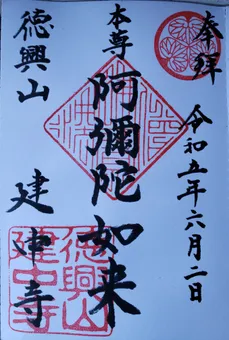 奉拝
令和五年六月二日
本尊
阿彌陀如来
徳興山
建中寺
徳興山
建中寺